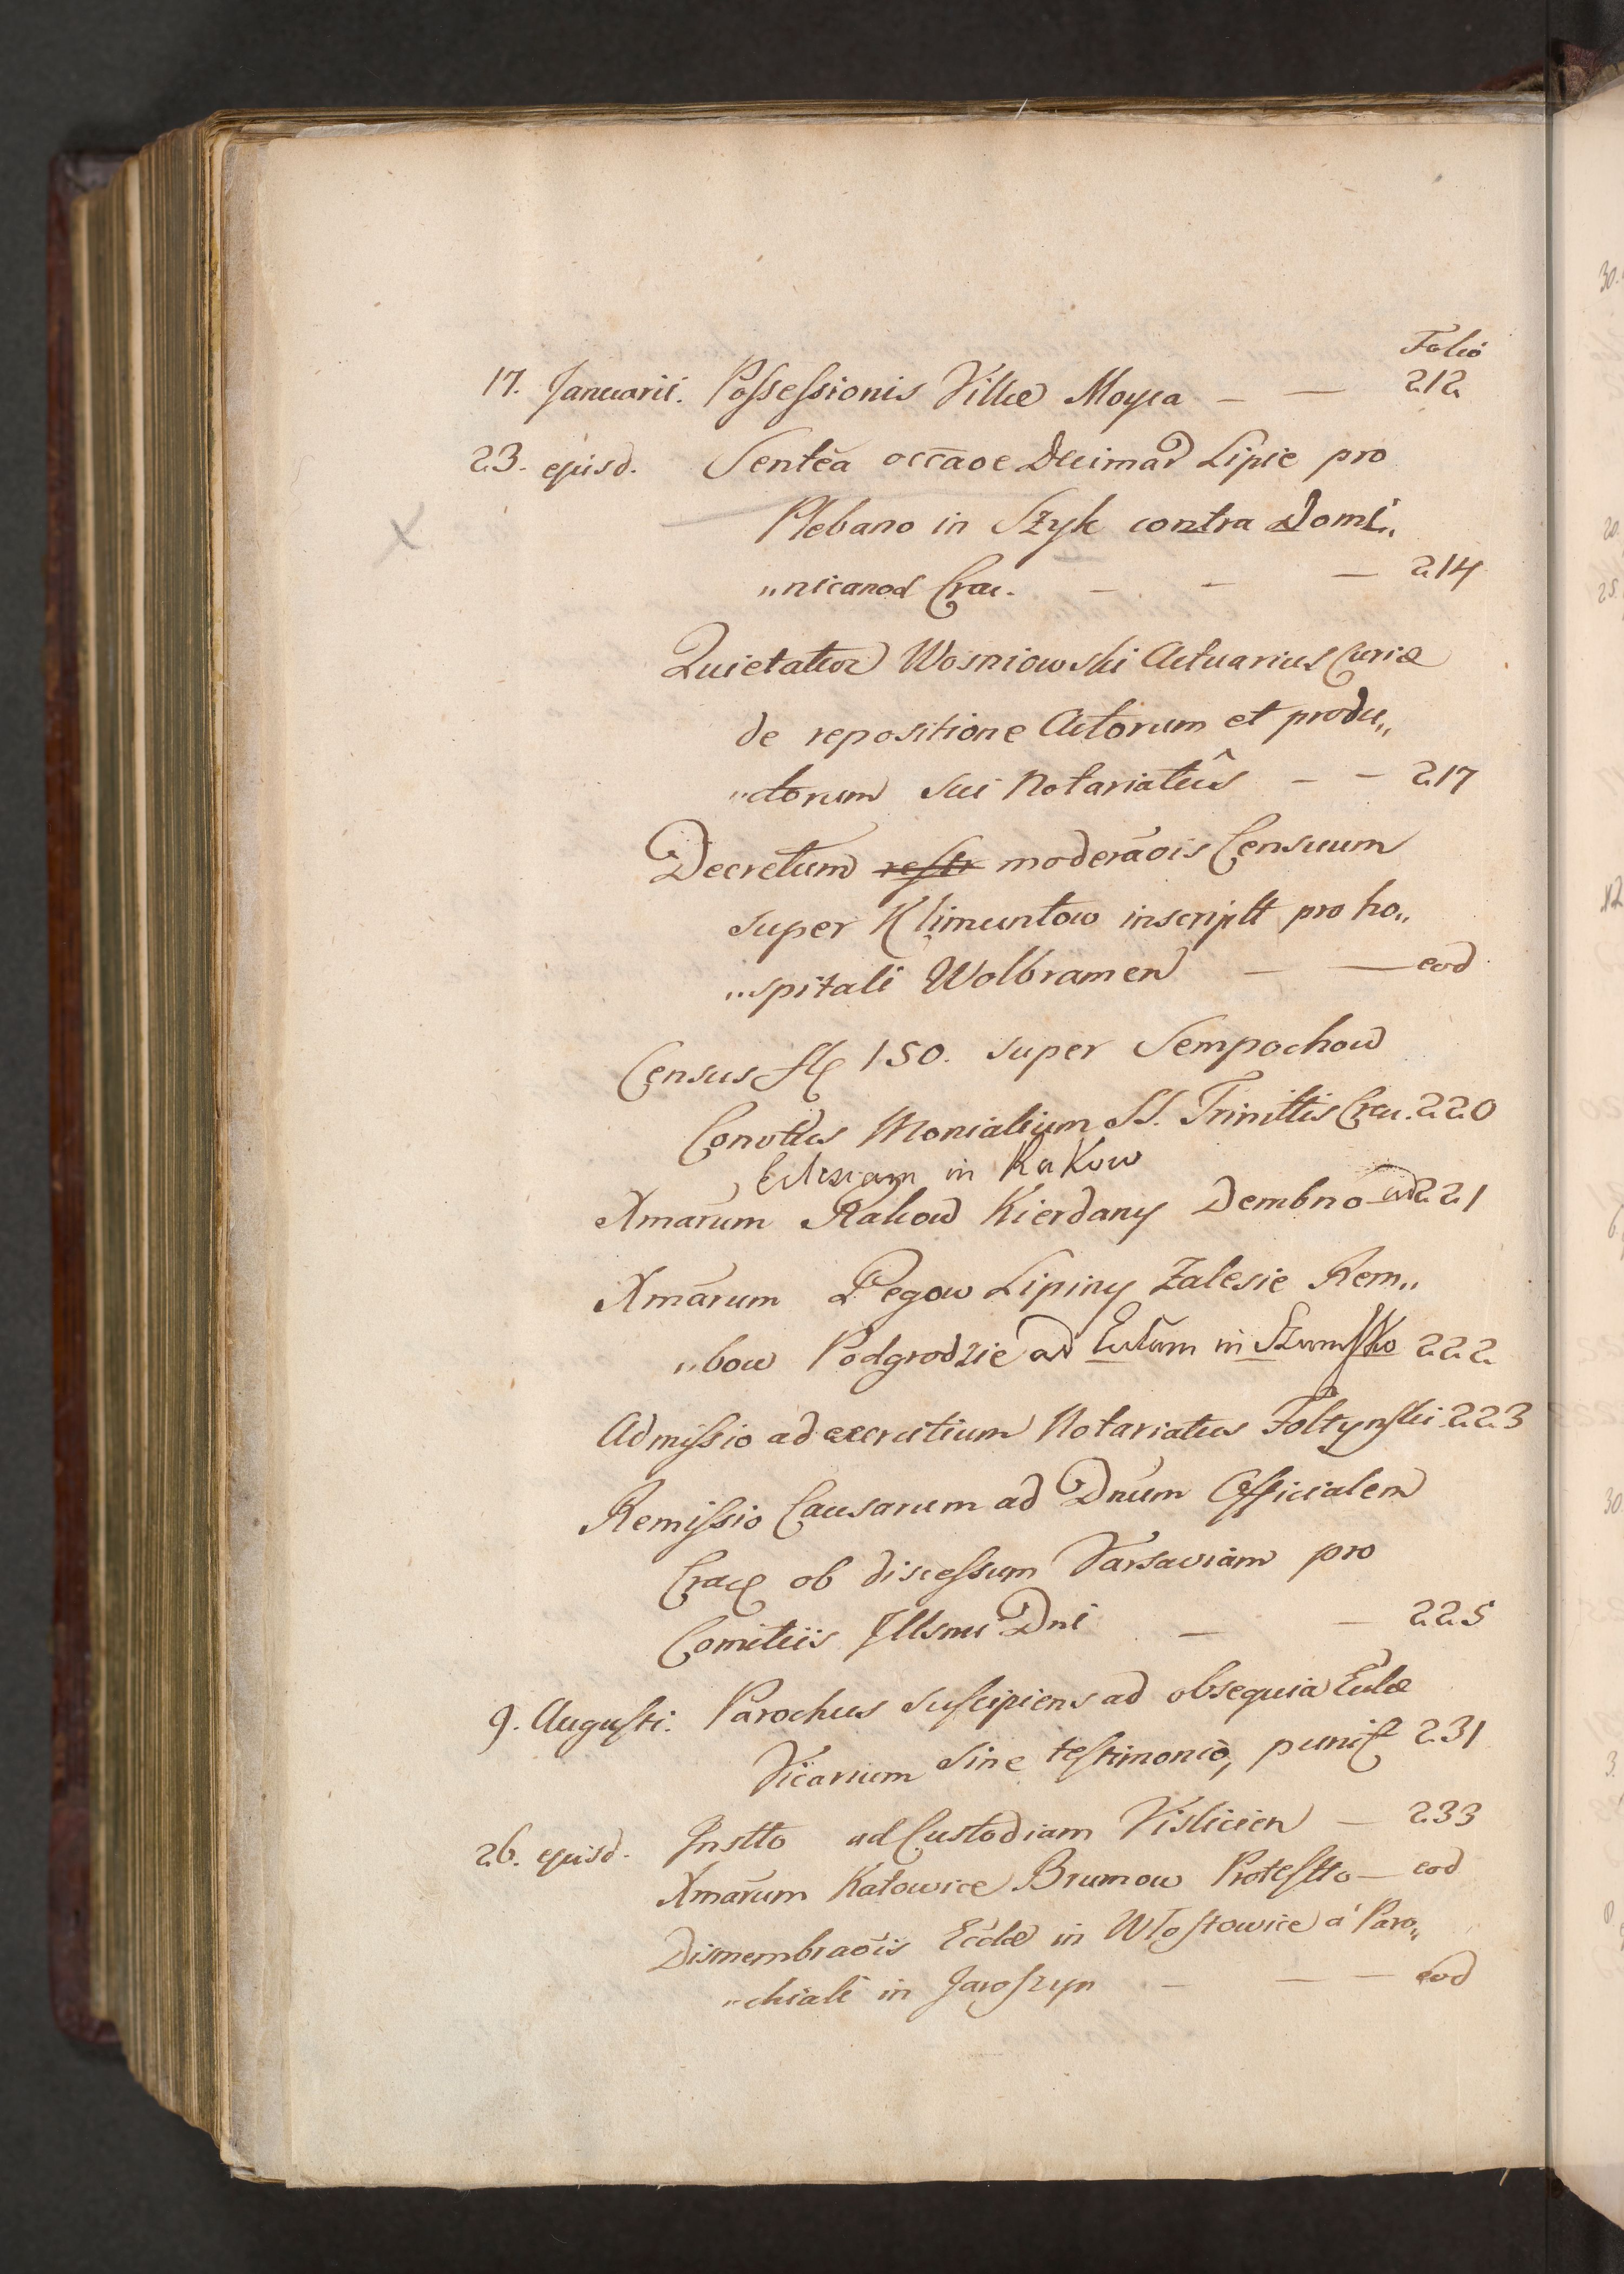 Folio
17. Januarii. Possessionis Villæ Moyca – — 212
23. ejusd. Sentēa occāoe Decimar Lipie pro
Plebano in Szyk contra Domi„
„nicanor Crac. – – — 214
Quietatur Wosniowski Actuarius Curiæ
de repositione Actorum et produ„
„ctorum sui Notariatûs – – 217
Decretum restr moderāois Censuum
super Klimuntow inscriptt pro ho„
„spitali Wolbramen – — eod
Census fl 150. super Sempochow
Convtus Monialium SS. Trinittis Crac. 220
Ecclesiam in Rakow
Xmarum Rakow Kierdany Dembno ad 221
Xmārum Pegow Lipiny Zalesie Rem„
„bow Podgrodzie ad Eccłam in Szumsko 222
Admissio ad exercitium Notariatus Foltynski 223
Remissio Causarum ad Dnum Officialem
Crac ob discessum Varsaviam pro
Comitiis Illsmi Dni – – 225
9. Augusti. Parochus suscipiens ad obsequia Ecclæ
Vicarium sine testimonio, punit 231
26. ejusd. Instto ad Custodiam Vislicien – 233
Xmarum Katowice Brumow Protestto – eod
Dismembraōis Eccłæ in Wlostowice à Paro„
„chiali in Jaroszyn – — – eod
X